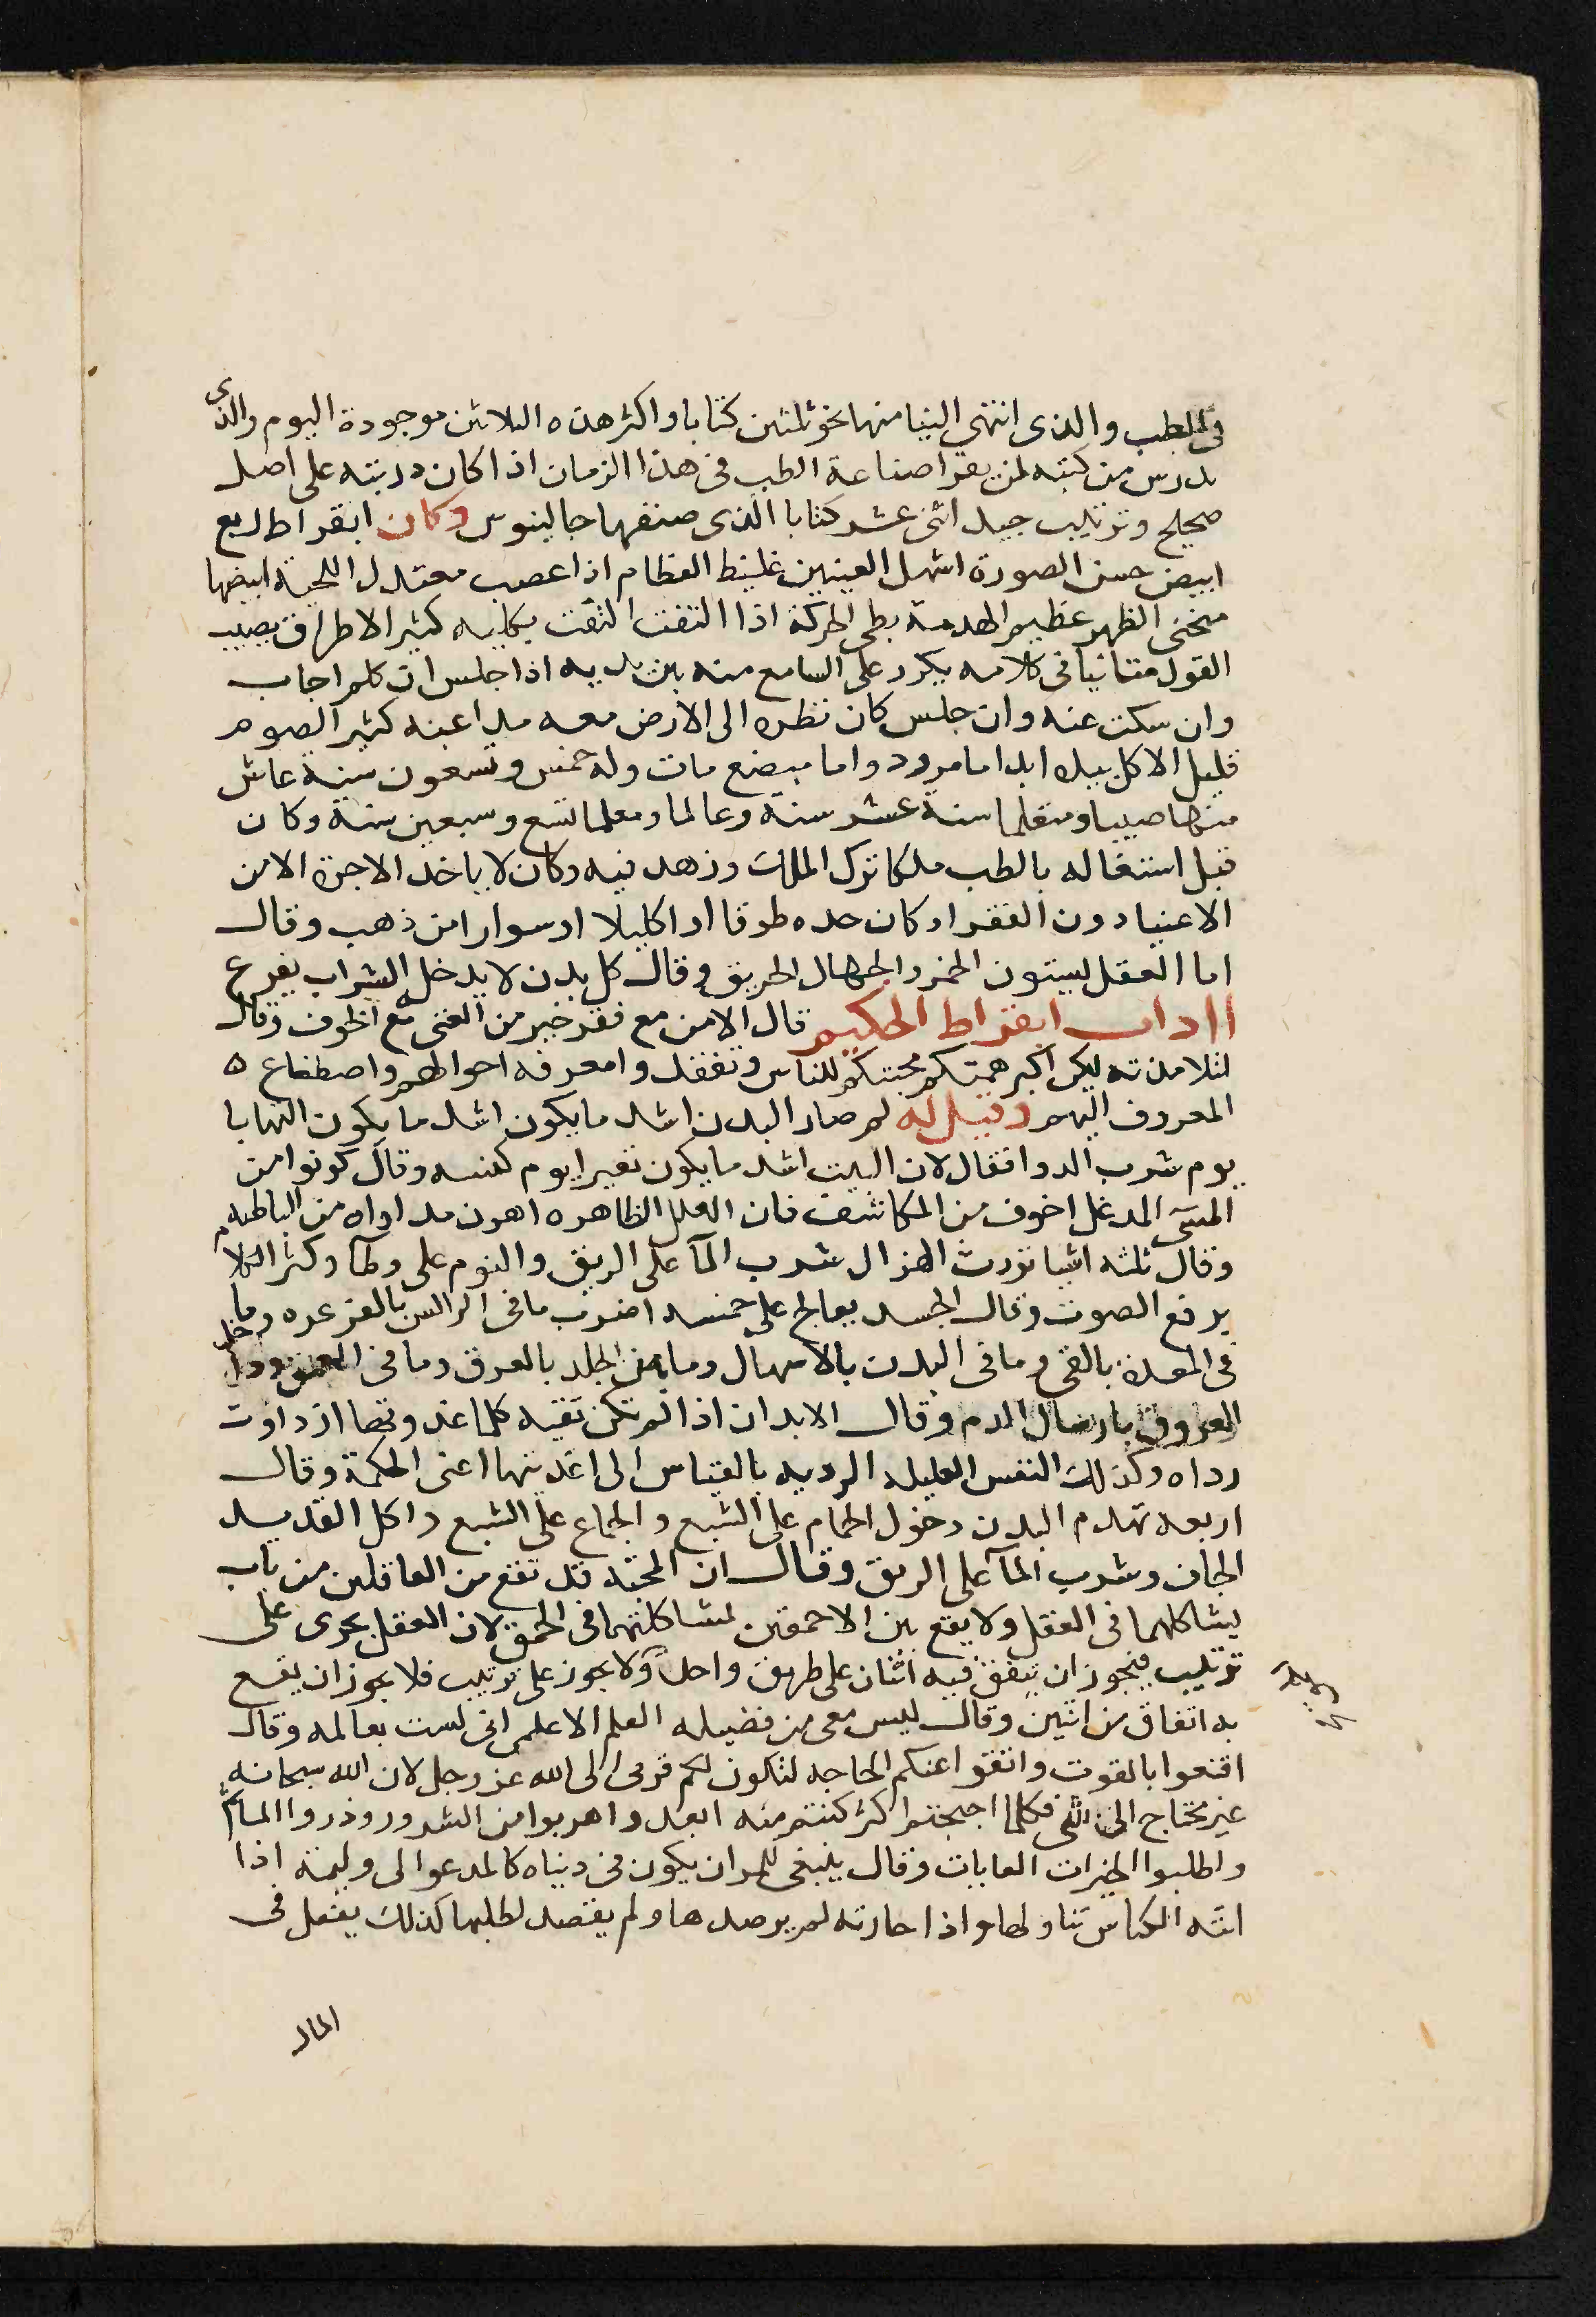 فى الطب والذى انتهى الينا منها نحو ثلثين كتابا واكثر هذه الثلاثين موجودة اليوم والذى
يدرس من كتبه لمن يقرا صناعة الطب فى هذا الزمان اذا كان دربته على اصل
صحيح وترتيب جيد اثنى عشر كتابا الذى صنفها جالينوس وكان ابقراط ربع
ابيض حسن الصورة اشهل العينين غليظ العظام اذا عصب معتدل اللحية ابيضها
منحنى الظهر عظيم الهامة بطى الحركة اذا التفت التفت بكليه كثير الاطراق يصيب
القول متانيا فى كلامه يكرر على السامع منه بين يديه اذا جلس ان كلم اجاب
وان سكت عنه وان جلس كان نظره الى الارض معه مداعبه كثير الصوم
قليل الاكل بيده ابدا ما مرود واما مبضع مات وله خمس وتسعون سنة عاش
منها صبيا ومتعلما ستة عشر سنة وعالما ومعلما تسع وسبعين سنة وكان
قبل اشتغاله بالطب ملكا ترك الملك وزهد فيه وكان لا ياخذ الاجرة الا من
الاغنيا دون الفقرا وكان حده طوقا او اكليلا او سوارا من ذهب وقال
اما العقل يستون الخمر والجهال الحريق وقال كل بدن لا يدخل الشراب يفرع
اداب ابقراط الحكيم قال الامن مع فقر خير من الغنى مع الخوف وقال
لتلامذته ليكن اكبر همتكم محبتكم للناس وتفقدوا معرفه احوالهم واصطناع ه
المعروف اليهم وقيل له لم صار البدن اشد ما يكون اشد ما يكون التهابا
يوم شرب الدوا فقال لان البيت اشد ما يكون تغيرا يوم كنسه وقال كونوا من
المسى المدغل اخوف من المكاشف فان العلل الظاهره اهون مداواه من الباطنه
وقال ثلثه اشيا تورث الهزال شرب المآ على الريق والنوم على وطآ وكثر الكلام
يرفع الصوت وقال الجسد يعالج على خمسه اضرب ما فى الراس بالغرغره وما
فى المعدة بالقى وما فى البدن بالاسهال وما بين الجلد بالعرق وما فى العمق وداخل
العروق بارسال الدم وقال الابدان اذا لم تكن نقيه كلما غذوتها ازدادت
رداه وكذلك النفس العليله الرديه بالقياس الى اغذيتها اعنى الحكمة وقال
اربعه تهدم البدن دخول الحمام على الشبع والجماع على الشبع واكل القديد
الجاف وشرب المآ على الريق وقال ان المحبه قد تقع من العاقلين من باب
يشاكلهما فى العقل ولا يقع بين الاحمقين لمشاكلتهما فى الحمق لان العقل يجرى على
ترتيب فيجوز ان يتفق فيه اثنان على طريق واحد ولا يجوز على ترتيب فلا يجوز ان يقع
به اتفاق من اثنين وقال ليس معى من فضيله العلم الا علمى انى لست بعالمه وقال
اقنعوا بالقوت واتقوا عنكم الحاجه لتكون لكم قربى الى الله عز وجل لان الله سبحانه
غير محتاج الى شى فكلما احتجتم اكثر كنتم منه ابعد واهربوا من الشرور وذروا المآثم
واطلبوا الخيرات الغايات وقال ينبغى للمر ان يكون فى دنياه كالمدعو الى وليمة اذا
اتته الكاس تناولها واذا حازته لم يرصدها ولم يقصد لطلبها كذلك يفعل فى
المال